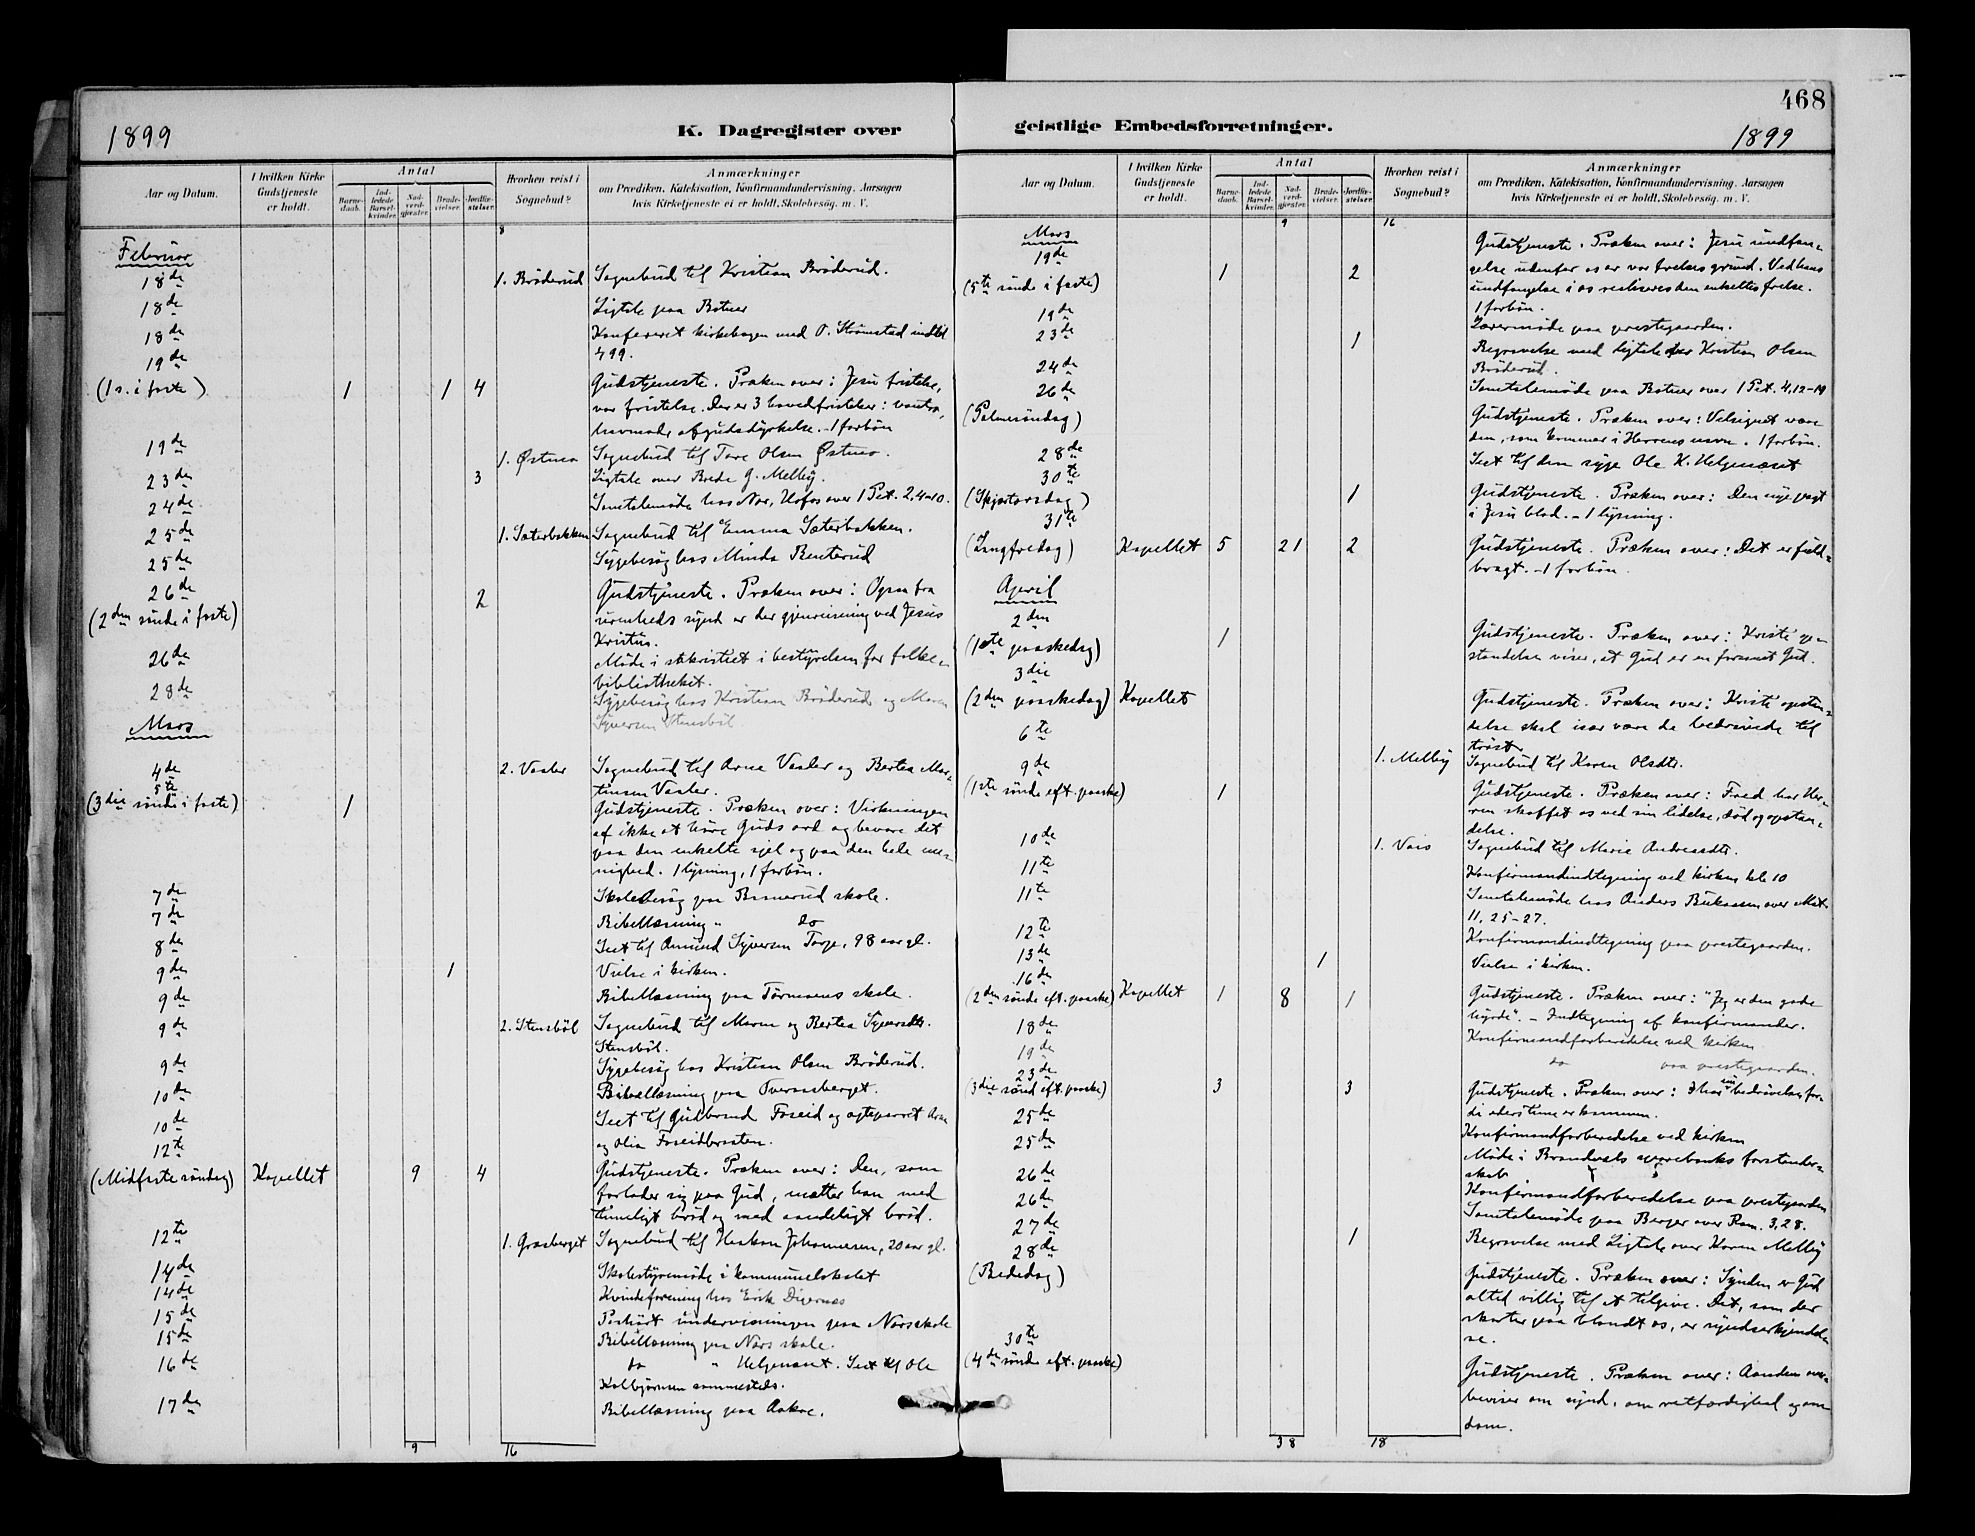 468
1899
K. Dagregister over
geistlige Embedsforretninger.
1899
Aar og Datum.
I hvilken Kirke Gudstjeneste er holdt.
Antal
Barnedaab.
Indledede Barselkvinder.
Nadverdgjæster.
Brudevielser.
Jordfæstelser.
Hvorhen reist i Sognebud?
Anmærkninger
om Prædiken, Katekisation, Konfirmandundervisning, Aarsagen
hvis Kirketjeneste ei er holdt, Skolebesøg, m. V.
8
Februar
18de 1. Brøderud Sognebud til Kristian Brøderud.
18de Ligtale paa Botner
18de Konfereret kirkebogen med O. Strømstad indtil
499.
19de
(1 s. i faste) 1 1 4 Gudstjeneste. Præken over: Jesu fristelse,
vor fristelse. Der er 3 hovedfristelser: vantro,
hovmod, afgudsdyrkelse. - 1 forbøn
19de 1. Østmo Sognebud til Tore Olsen Østmo.
23de 3 Ligtale over Brede G. Melby.
24de Samtalemøde hos Nor, Hofos over 1 Pet. 2,4-10.
25de 1. Sæterbakken Sognebud til Emma Sæterbakken.
25de Sygebesøg hos Minda Benterud
26de
(2den sønde i faste) 2 Gudstjeneste. Præken over: Ogsaa fra
urenheds synd er der gjenreisning ved Jesus
Kristus.
26de Møde i sakristiet i bestyrelsen for folke-
bibliotheket.
28de Sygebesøg hos Kristian Brøderud og Maren
Syversen Stensbøl.
Mars
4de 2. Vaaler Sognebud til Arne Vaaler og Bertea Mar-
tinsen Vaaler.
5te
(3die sønde i faste) 1 Gudstjeneste. Præken over: Virkningen
af ikke at høre Guds ord og bevare det
paa den enkelte sjel og paa den hele me-
nighed. 1 lysning, 1 forbøn.
7de Skolebesøg paa Brunerud skole.
7de Bibellæsning " do
8de Seet til Amund Syversen Torp, 98 aar gl.
9de 1 Vielse i kirken.
9de Bibellæsning paa Tørmoens skole.
9de 2. Stensbøl Sognebud til Maren og Bertea Syversdtr.
Stensbøl.
9de Sygebesøg hos Kristian Olsen Brøderud.
10de Bibellæsning paa Tveraasberget.
10de Seet til Gudbrand Foseid og ægteparret Arne
og Olia Foseidbraaten.
12te
(Midfaste søndag) Kapellet 9 4 Gudstjeneste. Præken over: Den, som
forlader sig paa Gud, mætter han med
timeligt brød og med aandeligt brød.
12te 1. Græsberget Sognebud til Haakon Johannesen, 20 aar gl.
14de Skolestyremøde i kommunelokalet
14de Kvindeforening hos Erik
15de Paahørt undervisningen paa Nors skole
15de Bibellæsning paa Nors skole.
16de do " Helgenæset. Seet til Ole
Kolbjørnsen sammesteds.
17de Bibellæsning paa Aakre.
9 16
Aar og Datum.
I hvilken Kirke Gudstjeneste er holdt.
Antal
Barnedaab.
Indledede Barselkvinder.
Nadverdgjæster.
Brudevielser.
Jordfæstelser.
Hvorhen reist i Sognebud?
Anmærkninger
om Prædiken, Katekisation, Konfirmandundervisning, Aarsagen
hvis Kirketjeneste ei er holdt, Skolebesøg, m. V.
9 16
Mars
19de
(5te sønde i faste) 1 2 Gudstjeneste. Præken over: Jesu undfan-
gelse udenfor os er vor frelses grund. Ved hans
undfangelse i os realiseres den enkeltes frelse.
1 forbøn.
19de Lærermøde paa prestegaarden.
23de 1 Begravelse med ligtale over Kristian Olsen
Brøderud.
24de Samtalemøde paa Botner over 1 Pet. 4,12-19
26de
(Palmesøndag) Gudstjeneste. Præken over: Velsignet være
den, som kommer i Herrens navn. 1 forbøn.
28de Seet til den syge Ole K. Helgenæset
30te
(Skjærtorsdag) 1 Gudstjeneste. Præken over: Den nye pagt
i Jesu blod. - 1 lysning.
31te
(Langfredag) Kapellet 5 21 2 Gudstjeneste. Præken over: Det er fuld-
bragt. - 1 forbøn.
April
2den
(1ste paaskedag) 1 Gudstjeneste. Præken over: Kristi op-
standelse viser, at Gud er en forsonet Gud.
3die
(2den paaskedag) Kapellet Gudstjeneste. Præken over: Kristi opstan-
delse skal især være de bedrøvede til
trøst.
6te 1. Melby Sognebud til Karen Olsdtr.
9de
(1ste sønde eft. paaske) 1 Gudstjeneste. Præken over: Fred har Her-
ren skaffet os ved sin lidelse, død og opstan-
delse.
10de 1. Sognebud til Marie Andreasdtr.
11te Konfirmandindtegning ved kirken kl. 10
11te Samtalemøde hos Anders over Mat.
11, 25-27.
12te Konfirmandindtegning paa prestegaarden.
13de 1 Vielse i kirken.
16de
(2den sønde eft. paaske) Kapellet 1 8 1 Gudstjeneste. Præken over: "Jeg er den gode
hyrde". - Indtegning af konfirmander.
18de Konfirmandforberedelse ved kirken
19de do paa prestegaarden.
23de
(3die sønd eft. paaske) 3 3 Gudstjeneste. Præken over: I har nu bedrøvelse, for-
di eders time er kommen.
25de Konfirmandforberedelse ved kirken
25de Møde i Brandvals sparebanks forstander-
skab.
26de Konfirmandforberedelse paa prestegaarden
26de Samtalemøde paa Berger over Rom. 3,28.
27de 1 Begravelse med Ligtale over Karen Melby
28de
(Bededag) Gudstjeneste. Præken over: Synden er Gud
altid villig til at tilgive. Det, som der
skorter paa blandt os, er syndserkjendel-
se.
30te
(4de sønde eft. paaske) Gudstjeneste. Præken over: Aanden over-
beviser om synd, om retfærdighed og om
dom.
38 18